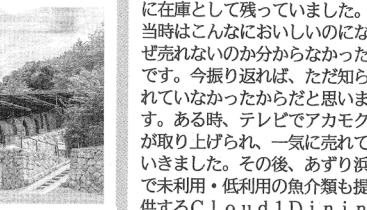 に在庫として残っていました。
当時はこんなにおいしいのにな
ぜ売れないのか分からなかった
です。今振り返れば、ただ知ら
れていなかったからだと思いま
す。ある時、テレビでアカモク
が取り上げられ、一気に売れて
いきました。その後、あずり浜
で未利用・低利用の魚介類も提
供するＣｌｏｕｄ１Ｄｉｎｉｎ